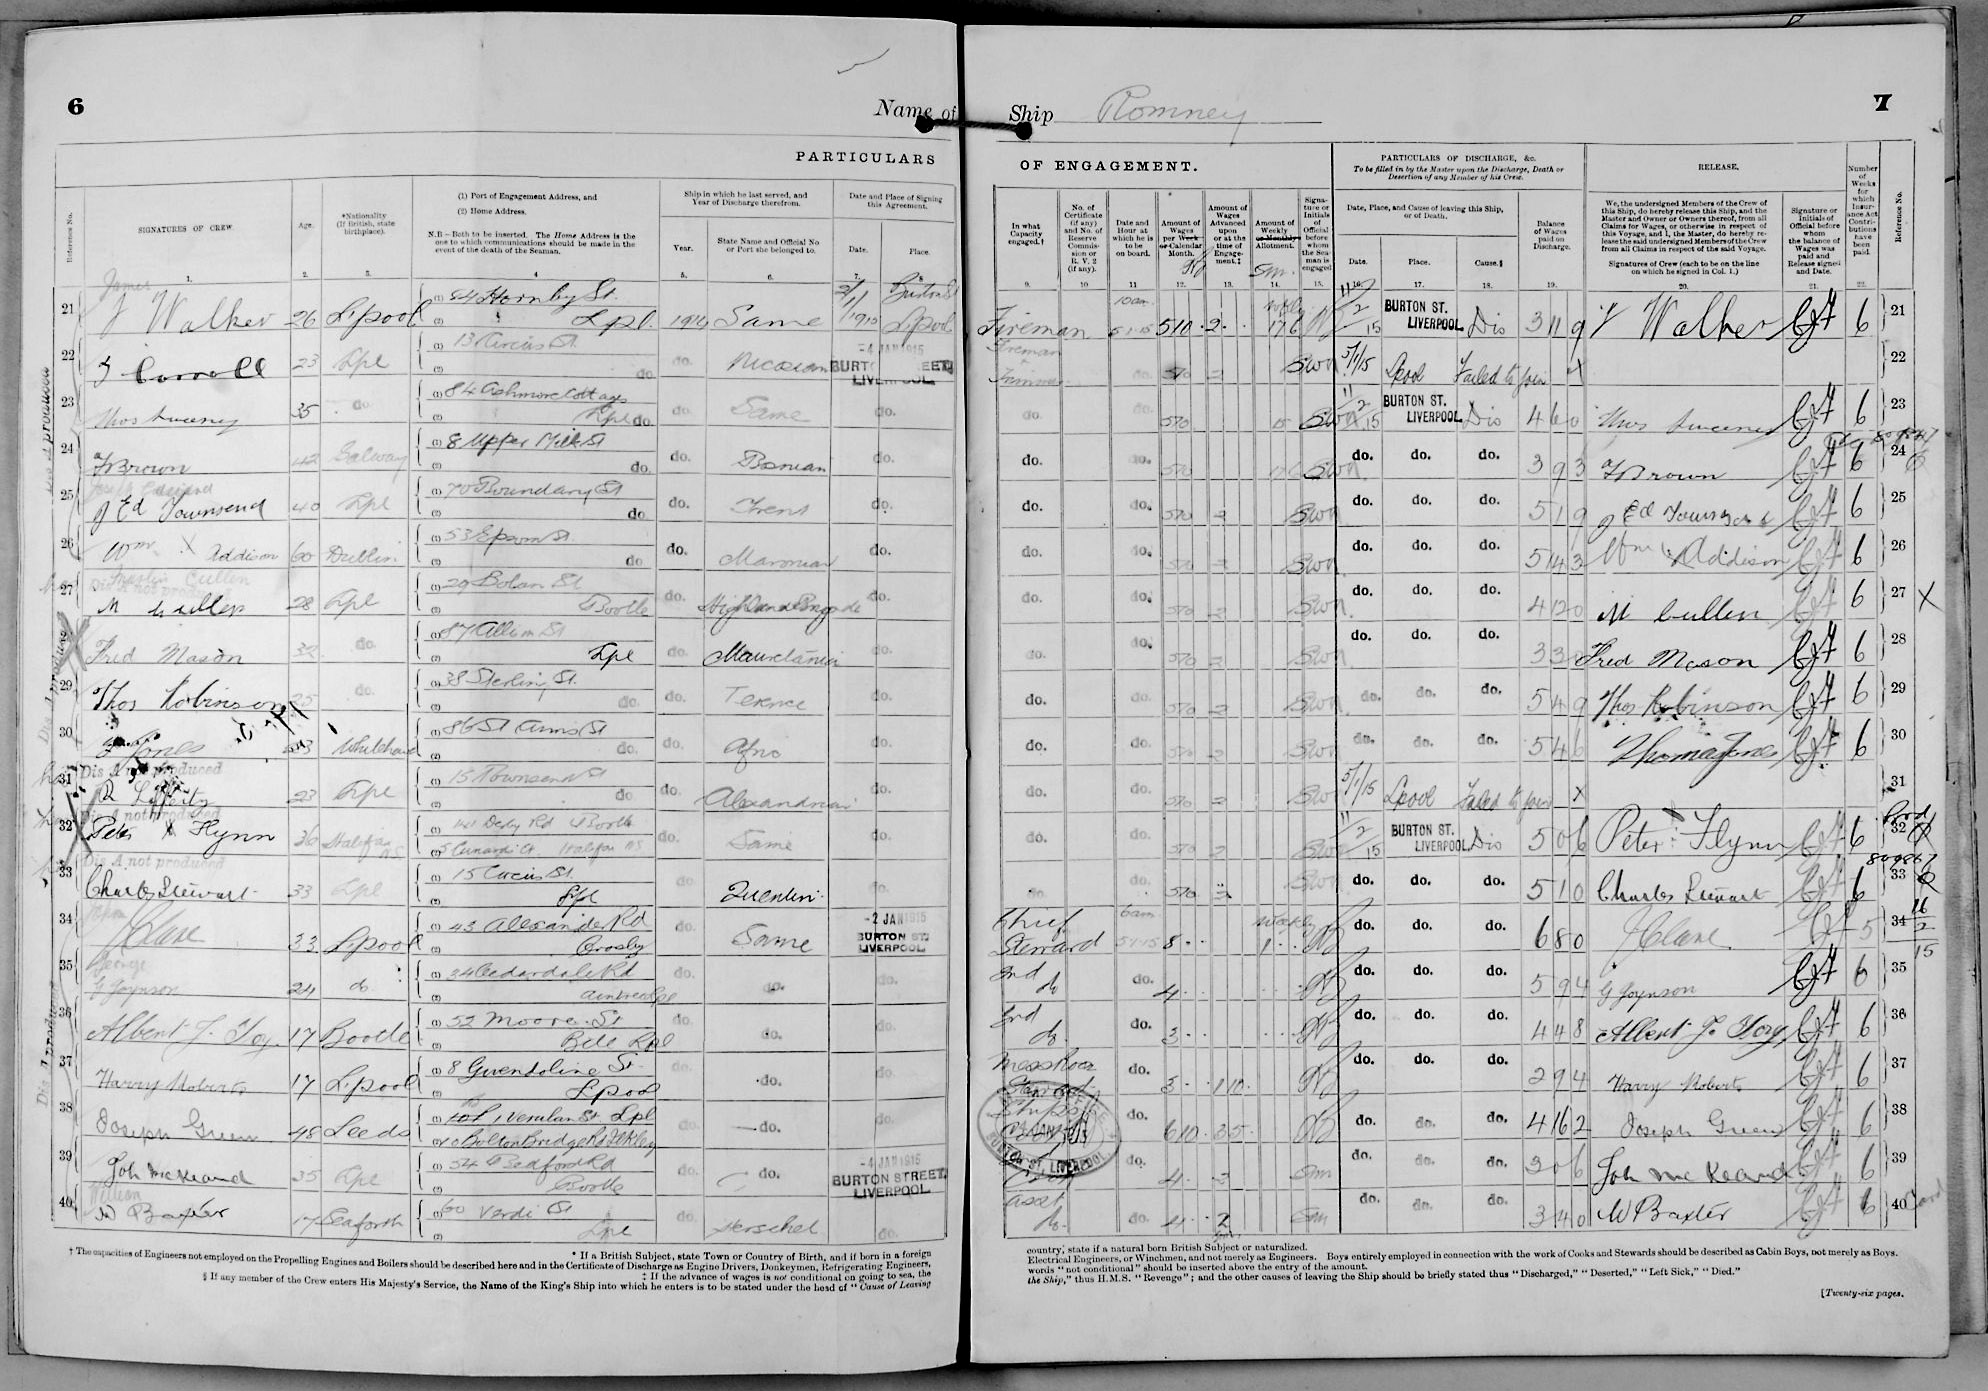 6
Name of
PARTICULARS
Reference No.
SIGNATURES OF CREW.
Age.
*Nationality (If British, state birthplace).
(1) Port of Engagement Address, and
(2) Home Address.
N.B.—Both to be inserted. The Home Address is the one to which communications should be made in the event of the death of the Seaman.
Ship in which he last served, and Year of Discharge therefrom.
Year.
State Name and Official No. or Port she belonged to.
Date and Place of Signing this Agreement.
Date.
Place.
1. 2. 3. 4 5. 6. 7. 8.
21 James J Walker 26 L'pool (1) 54 Hornby St. (2) Lpl. 1914 Same 2/1/1915 Burton St L'pool
22 Carroll 23 Lpl (1) 13 Circus St. (2) do. do. -4 JAN 1915 BURTON STREET, LIVERPOOL
23 Thos Sweeney 35 do. (1) 84 Ashmore Cottages (2) Lpl do. do. Same do.
24 Brown 42 Galway (1) 8 Upper Milk St (2) do. do. Bosnian do.
25 J Ed Townsend 40 Lpl (1) 70 Boundary St (2) do. do. Trent do.
26 Wm X Addison 60 Dublin (1) 53 Epsom St. (2) do. do. do.
27 Martin Cullen Dis A not produced M Cullen 28 Lpl (1) 29 Bolan St (2) Bootle do. Highland Brigade do.
28 Fred Mason 32 do. (1) 87 St (2) Lpl do. Mauretania do.
29 Thos Robinson 25 do. (1) 38 Sterling St. (2) do. do. Terence do.
30 Jones (1) 86 St Anns St (2) do. do. do.
31 Dis A not produced R 23 Lpl (1) 15 Townsend St (2) do do. Alexandrian do.
32 Dis A not produced Peter X Flynn 36 Halifax NS (1) 141 Derby Rd Bootle (2) 5 Cunard Ct Halifax NS do. Same do.
33 Dis A not produced Charles Stewart 33 Lpl (1) 15 Circus St. (2) Lpl do. Quentin do.
34 J Clare 33 L'pool (1) 43 Alexander Rd (2) Crosby do. Same -2 JAN 1915 BURTON ST. LIVERPOOL
35 George G Joynson 24 do. (1) 34 Cedardale Rd (2) Aintree Lpl do. do. do.
36 Albert J. Toy. 17 Bootle (1) 52 Moore St (2) Btle Lpl do. do. do.
37 Harry Roberts 17 L'pool (1) 8 Gwendoline St. (2) L'pool do. do. do.
38 Joseph Green 48 Leeds (1) Verulam St Lpl (2) Bolton Bridge Rd Ilkley do. do. do.
39 Joh McKeand 35 Lpl (1) 54 Bedford Rd (2) Bootle do. do. -4 JAN 1915 BURTON STREET, LIVERPOOL
40 William W Baxter 17 Seaforth (1) 60 Verdi St (2) Lpl do. Herschel do.
† The capacities of Engineers not employed on the Propelling Engines and Boilers should be described here and in the Certificate of Discharge as Engine Drivers, Donkeymen, Refrigerating Engineers,
* If a British Subject, state Town or Country of Birth, and if born in a foreign
‡ If the advance of wages is not conditional on going to sea, the
§ If any member of the Crew enters His Majesty's Service, the Name of the King's Ship into which he enters is to be stated under the head of "Cause of Leaving
Ship Romney
7
OF ENGAGEMENT.
PARTICULARS OF DISCHARGE, &c.
To be filled in by the Master upon the Discharge, Death or Desertion of any Member of his Crew.
RELEASE.
Number of Weeks for which Insurance Act Contributions have been paid.
Reference No.
In what Capacity engaged.†
No. of Certificate (if any) and No. of Reserve Commission or R. V. 2 (if any).
Date and Hour at which he is to be on board.
Amount of Wages per Week or Calendar Month.
Amount of Wages Advanced upon or at the time of Engagement.‡
Amount of Weekly or Monthly Allotment.
Signature or Initials of Official before whom the Seaman is engaged
Date, Place, and Cause of leaving this Ship, or of Death.
Date. Place. Cause.§
Balance of Wages paid on Discharge.
We, the undersigned Members of the Crew of this Ship, do hereby release this Ship, and the Master and Owner or Owners thereof, from all Claims for Wages, or otherwise in respect of this Voyage, and I, the Master, do hereby release the said undersigned Members of the Crew from all Claims in respect of the said Voyage.
Signatures of Crew (each to be on the line on which he signed in Col. 1.)
Signature or Initials of Official before whom the balance of Wages was paid and Release signed and Date.
9. 10 11 12. 13. 14. 15. 16. 17. 18. 19. 20. 21. 22.
Fireman 5 1 15 5 10 2 17 6 11/2/15 BURTON ST. LIVERPOOL Dis 3 11 9 J Walker 6 21
Fireman Trimmer do. 5 10 2 5/1/15 Lpool Failed to join X 22
do. do. 5 10 11/2/15 BURTON ST. LIVERPOOL Dis 4 6 0 Thos Sweeney 6 23
do. do. 5 10 do. do. do. 3 9 3 Brown 6 24
do. do. 5 10 2 do. do. do. 5 1 9 J Ed Townsend 6 25
do. do. 5 10 2 do. do. do. 5 14 3 Wm X Addison 6 26
do. do. 5 10 2 do. do. do. 4 12 0 M Cullen 6 27 X
do. do. 5 10 2 do. do. do. 3 3 Fred Mason 6 28
do. do. 5 10 2 do. do. do. 5 4 9 Thos Robinson 6 29
do. do. 5 10 2 do. do. do. 5 4 6 Thomas Jones 6 30
do. do. 5 10 2 5/1/15 Lpool Failed to join X 31
do. do. 5 10 2 11/2/15 BURTON ST. LIVERPOOL Dis 5 0 6 Peter Flynn 6 32
do. do. 5 10 2 do. do. do. 5 1 0 Charles Stewart 6 33
Chief Steward 6am 5 1 15 8 Weekly 1 do. do. do. 6 8 0 J Clare 5 34 16/2/15
2nd do. do. 4 do. do. do. 5 9 4 G Joynson 6 35
3rd do. do. 3 do. do. do. 4 4 8 Albert J. Toy 6 36
Messroom Steward do. 3 1 10 do. do. do. 2 9 4 Harry Roberts 6 37
Ships Cook do. 6 10 3 5 do. do. do. 4 16 2 Joseph Green 6 38
do. 4 3 do. do. do. 3 0 6 Joh McKeand 6 39
Asst do. do. 4 2 do. do. do. 3 4 0 W Baxter 6 40
BURTON ST, LIVERPOOL
country, state if a natural born British Subject or naturalized.
Electrical Engineers, or Winchmen, and not merely as Engineers. Boys entirely employed in connection with the work of Cooks and Stewards should be described as Cabin Boys, not merely as Boys.
words "not conditional" should be inserted above the entry of the amount.
the Ship," thus H.M.S. "Revenge"; and the other causes of leaving the Ship should be briefly stated thus "Discharged," "Deserted," "Left Sick," "Died."
[Twenty-six pages.